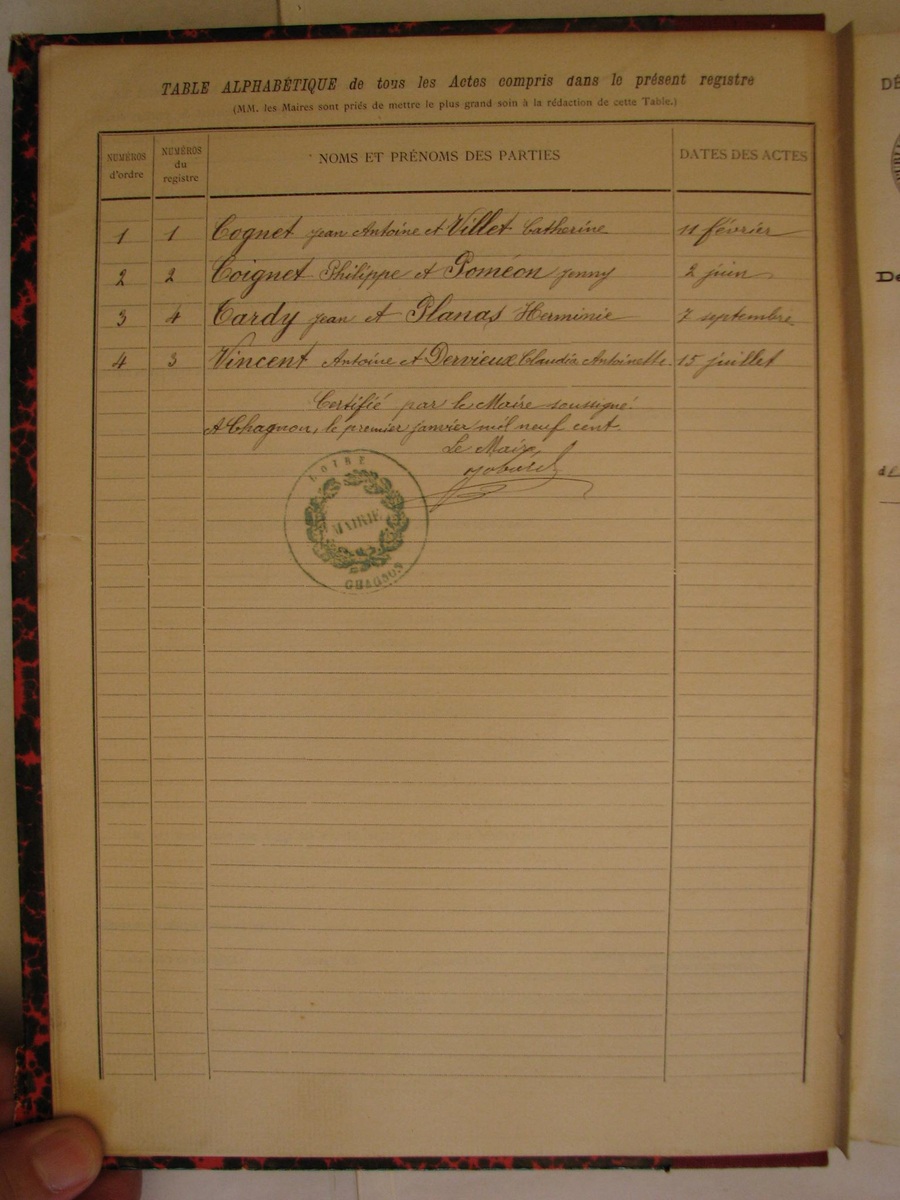 TABLE ALPHABÉTIQUE de tous les Actes compris dans le présent registre
(MM. les Maires sont priés de mettre le plus grand soin à la rédaction de cette Table.)
NUMÉROS d'ordre NUMÉROS du registre NOMS ET PRÉNOMS DES PARTIES DATES DES ACTES
1 1 Cognet Jean Antoine et Villet Catherine 11 février
2 2 Coignet Philippe et Poméon Jenny 2 juin
3 4 Tardy Jean et Planas Herminie 7 septembre
4 3 Vincent Antoine et Dervieux Claudia Antoinette. 15 juillet
Certifié par le Maire soussigné.
A Chagnon, le premier janvier mil neuf cent.
Le Maire,
LOIRE
MAIRIE
CHAGNON
DÉ
De